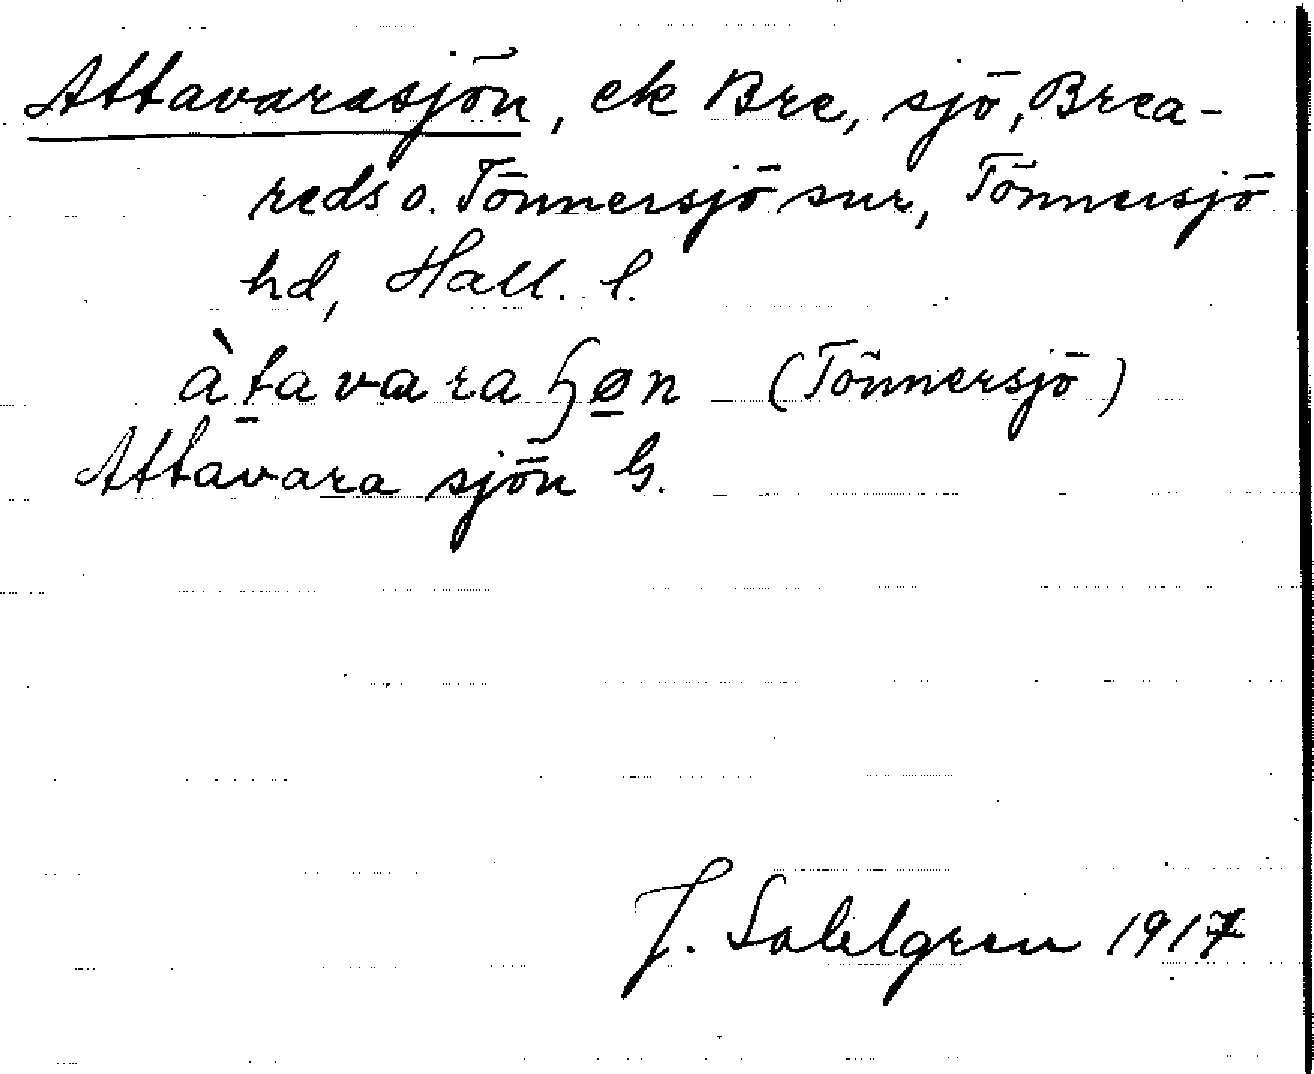 Attavarasjön, ek Bre, sjö, Brea-
reds o. Tönnersjö snr, Tönnersjö
hd, Hall. l.
àtavaraɧøn (Tönnersjö)
Attavara sjön G.
J. Sahlgren 1917